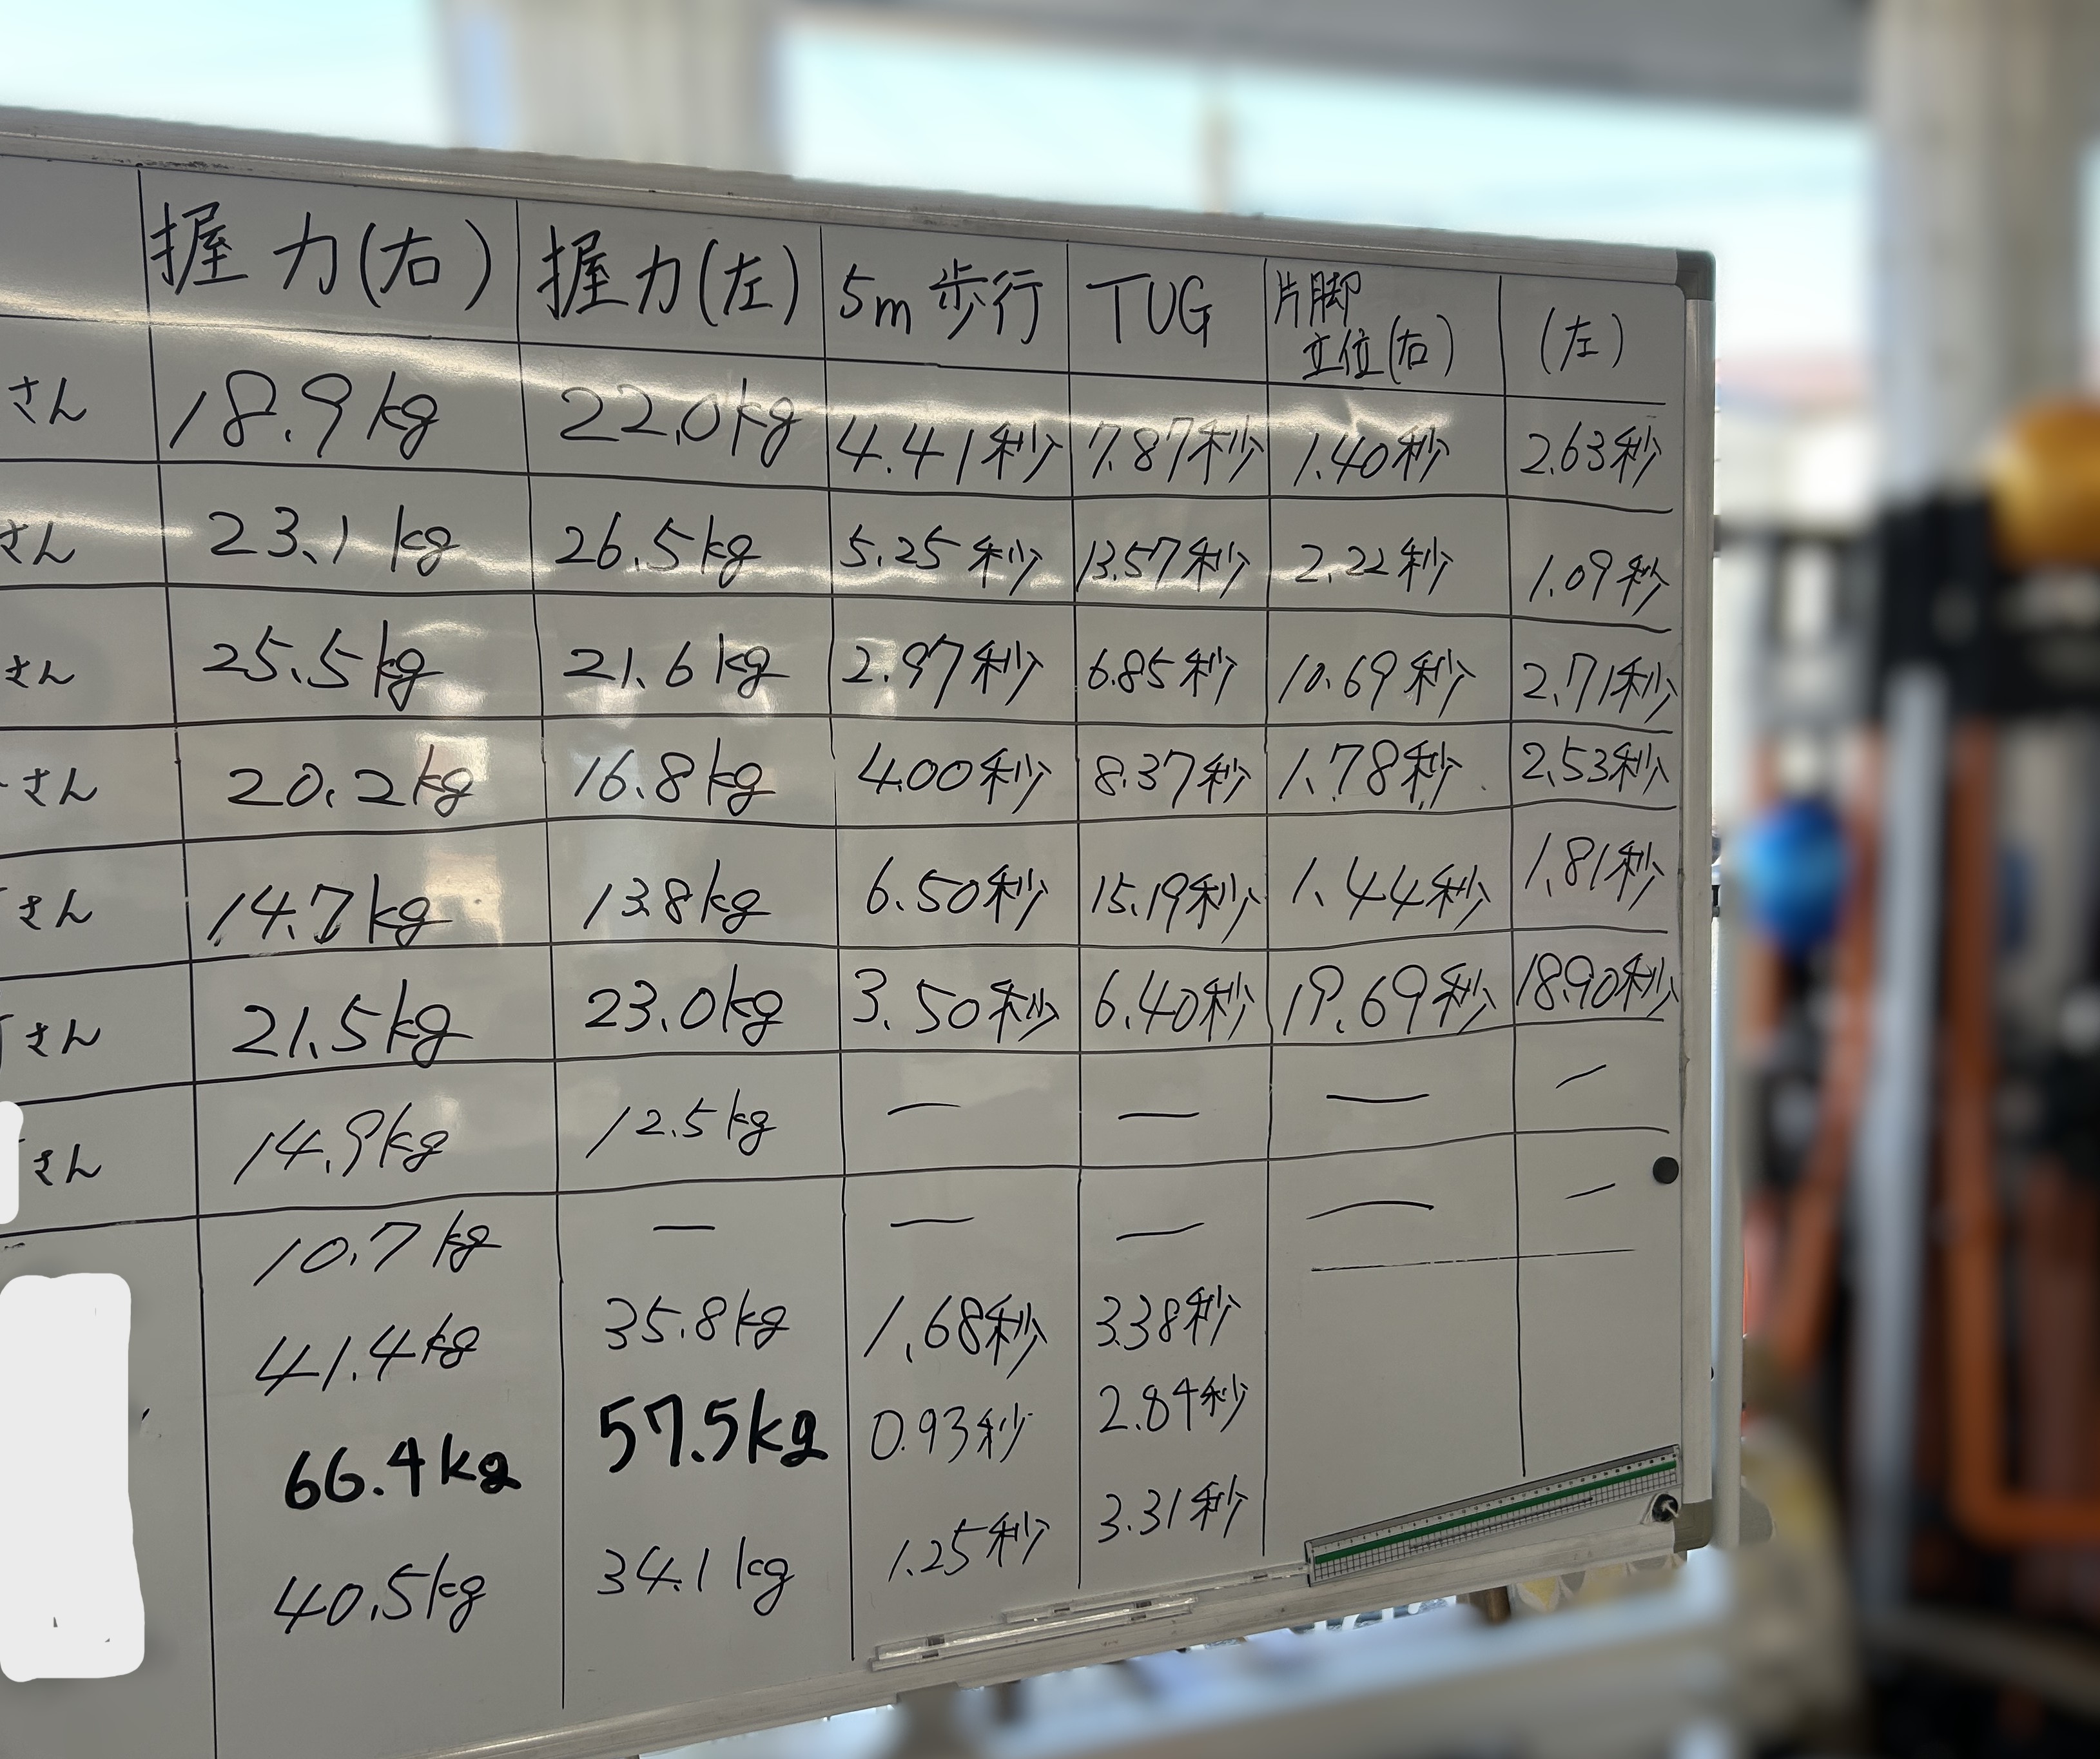 握力(右) 握力(左) 5m歩行 TUG 片脚立位(右) (左)
さん 18.9kg 22.0kg 4.41秒 7.87秒 1.40秒 2.63秒
さん 23.1kg 26.5kg 5.25秒 13.57秒 2.22秒 1.09秒
さん 25.5kg 21.6kg 2.97秒 6.85秒 10.69秒 2.71秒
さん 20.2kg 16.8kg 4.00秒 8.37秒 1.78秒 2.53秒
さん 14.7kg 13.8kg 6.50秒 15.19秒 1.44秒 1.81秒
さん 21.5kg 23.0kg 3.50秒 6.40秒 19.69秒 18.90秒
さん 14.9kg 12.5kg — — — —
10.7kg — — — — —
41.4kg 35.8kg 1.68秒 3.38秒
66.4kg 57.5kg 0.93秒 2.84秒
40.5kg 34.1kg 1.25秒 3.31秒